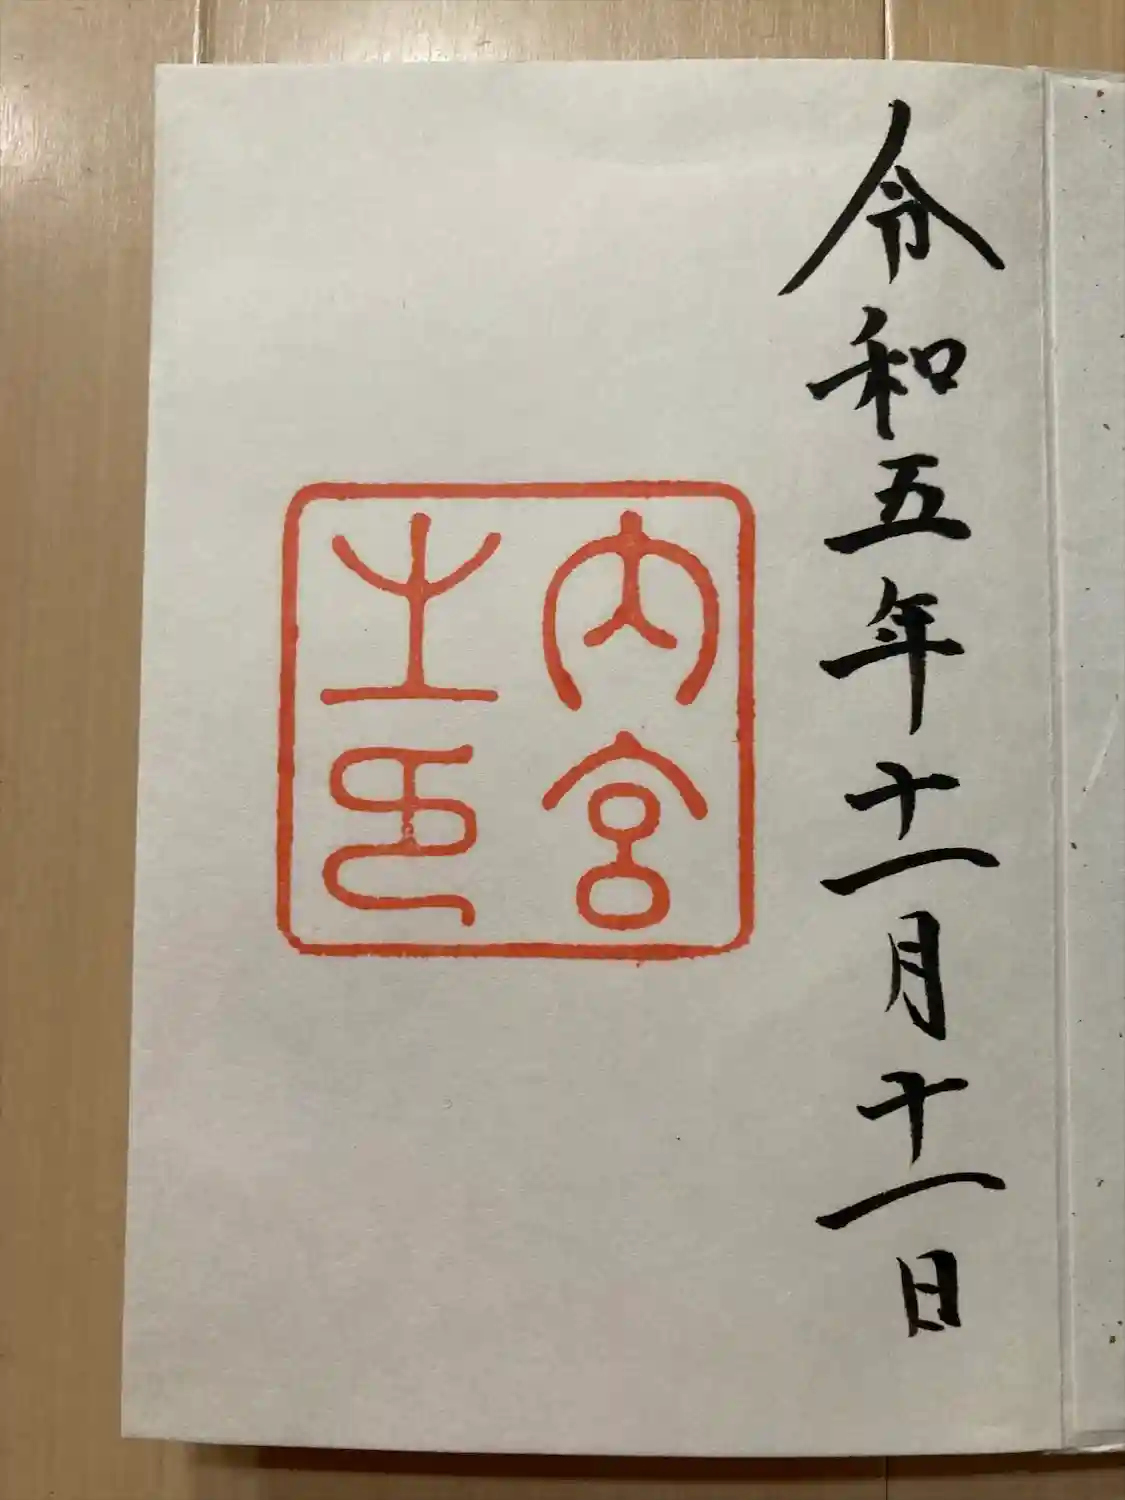 令和五年十一月十一日
内宮
之印